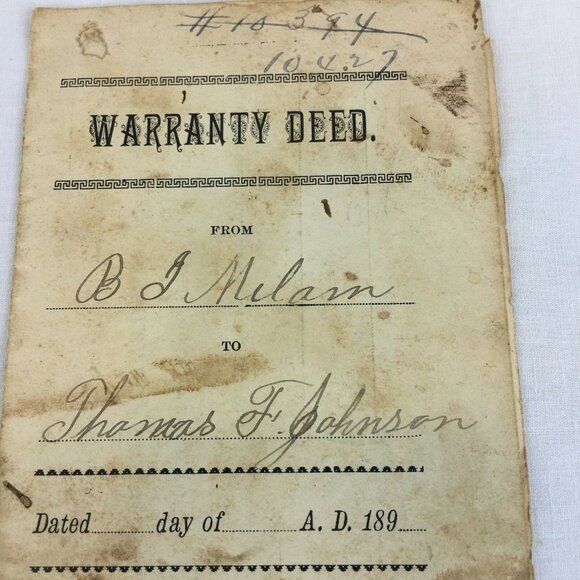 #10394
10427
WARRANTY DEED.
FROM
B J Milam
TO
Thomas F. Johnson
Dated day of A. D. 189